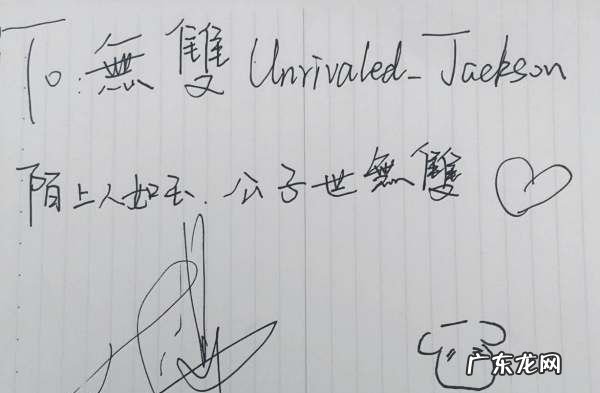 To:無雙 Unrivaled_Jackson
陌上人如玉.公子世無雙
广东龙网